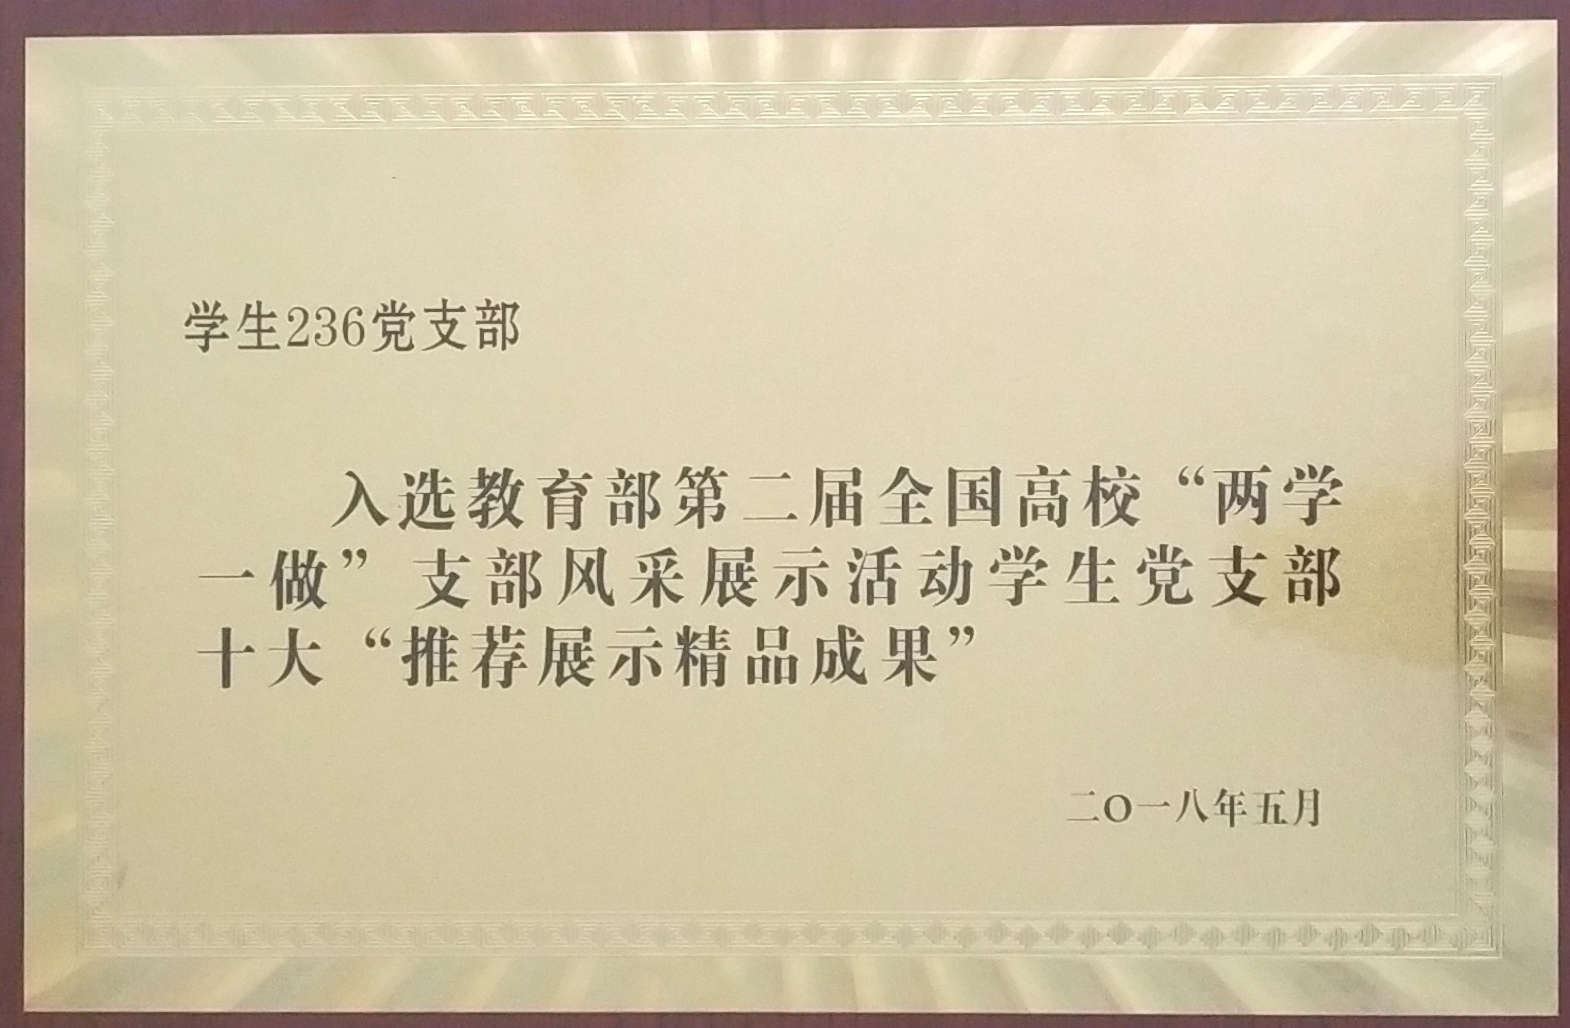 学生236党支部
入选教育部第二届全国高校“两学
一做”支部风采展示活动学生党支部
十大“推荐展示精品成果”
二〇一八年五月